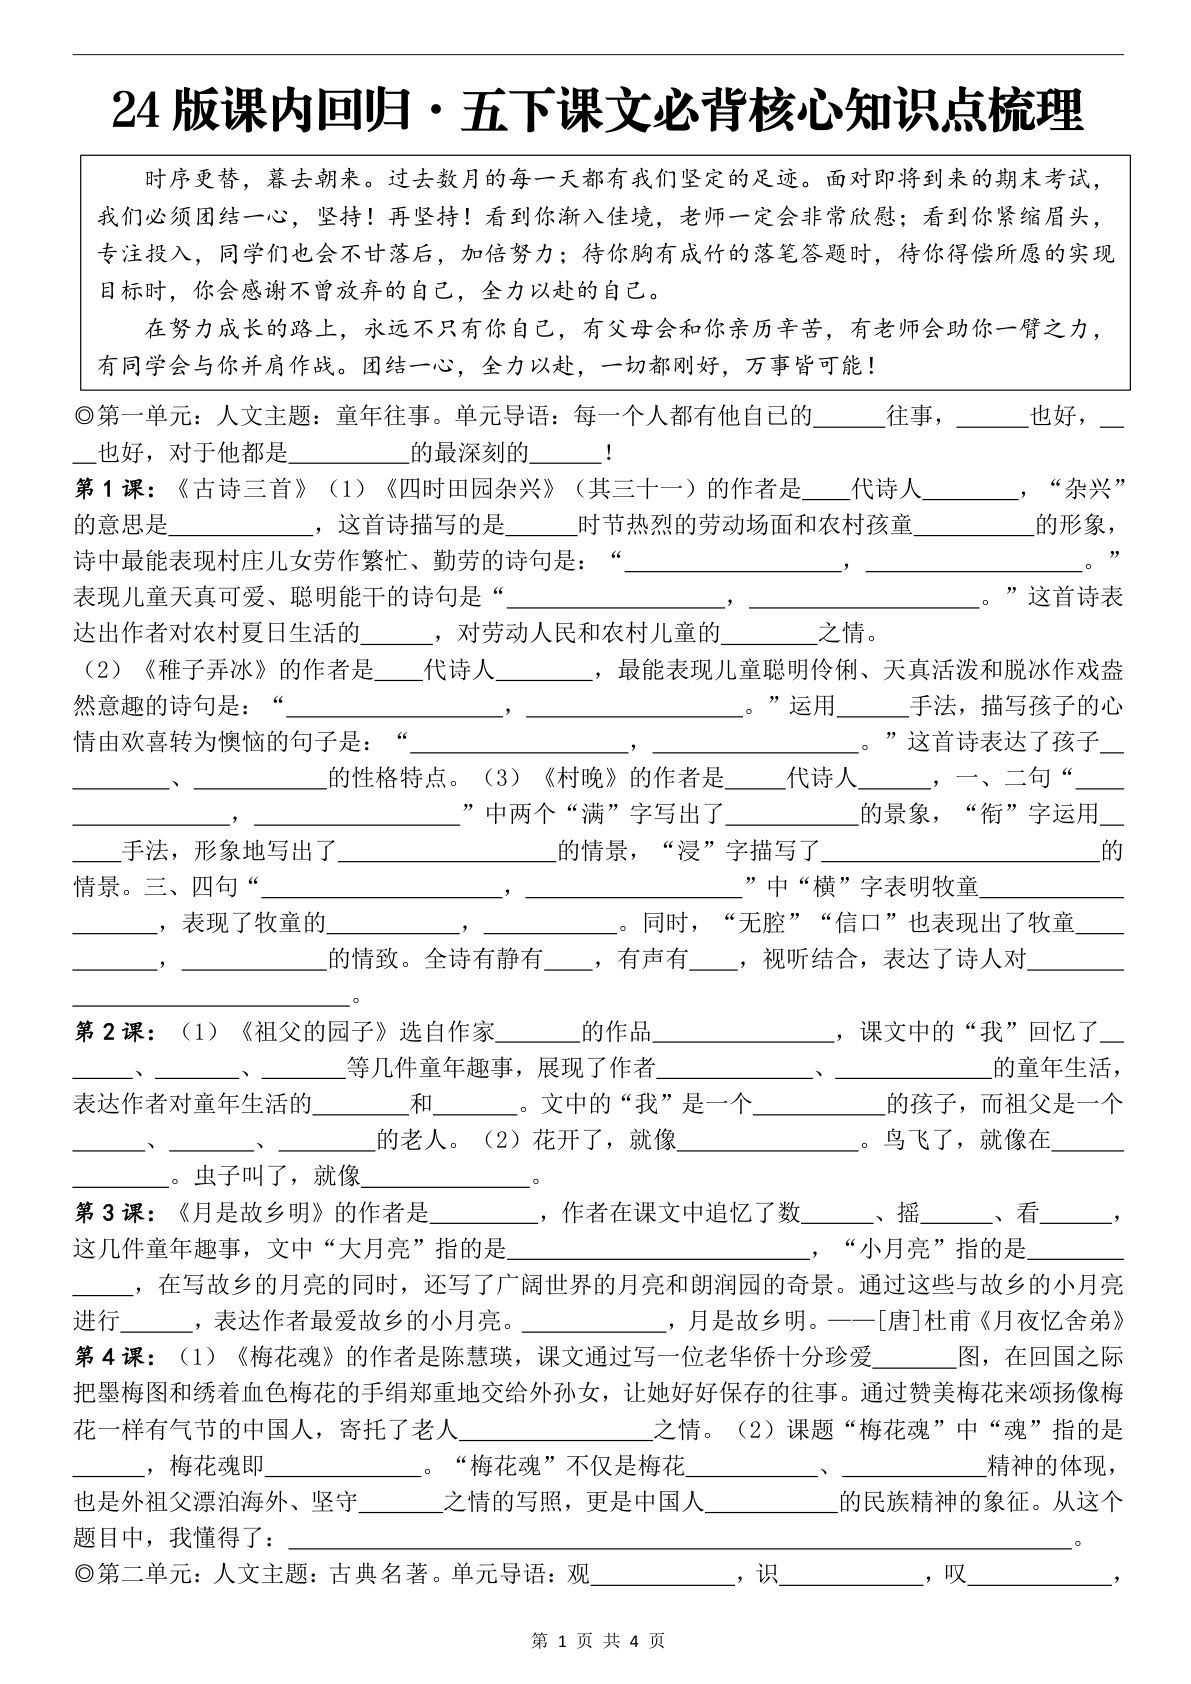 24版课内回归·五下课文必背核心知识点梳理
时序更替，暮去朝来。过去数月的每一天都有我们坚定的足迹。面对即将到来的期末考试，
我们必须团结一心，坚持！再坚持！看到你渐入佳境，老师一定会非常欣慰；看到你紧缩眉头，
专注投入，同学们也会不甘落后，加倍努力；待你胸有成竹的落笔答题时，待你得偿所愿的实现
目标时，你会感谢不曾放弃的自己，全力以赴的自己。
在努力成长的路上，永远不只有你自己，有父母会和你亲历辛苦，有老师会助你一臂之力，
有同学会与你并肩作战。团结一心，全力以赴，一切都刚好，万事皆可能！
◎第一单元：人文主题：童年往事。单元导语：每一个人都有他自已的______往事，______也好，__
__也好，对于他都是__________的最深刻的______！
第1课：《古诗三首》（1）《四时田园杂兴》（其三十一）的作者是____代诗人________，“杂兴”
的意思是____________，这首诗描写的是______时节热烈的劳动场面和农村孩童__________的形象，
诗中最能表现村庄儿女劳作繁忙、勤劳的诗句是：“__________________，__________________。”
表现儿童天真可爱、聪明能干的诗句是“__________________，___________________。”这首诗表
达出作者对农村夏日生活的______，对劳动人民和农村儿童的________之情。
（2）《稚子弄冰》的作者是____代诗人________，最能表现儿童聪明伶俐、天真活泼和脱冰作戏盎
然意趣的诗句是：“__________________，__________________。”运用______手法，描写孩子的心
情由欢喜转为懊恼的句子是：“__________________，_________________。”这首诗表达了孩子__
________、___________的性格特点。（3）《村晚》的作者是_____代诗人______，一、二句“____
_____________，_________________”中两个“满”字写出了___________的景象，“衔”字运用__
____手法，形象地写出了__________________的情景，“浸”字描写了_______________________的
情景。三、四句“____________________，__________________”中“横”字表明牧童____________
_______，表现了牧童的___________，___________。同时，“无腔”“信口”也表现出了牧童____
_______，____________的情致。全诗有静有____，有声有____，视听结合，表达了诗人对________
_______________________。
第2课：（1）《祖父的园子》选自作家_______的作品_______________，课文中的“我”回忆了__
_____、_______、_______等几件童年趣事，展现了作者_____________、_____________的童年生活，
表达作者对童年生活的________和_______。文中的“我”是一个___________的孩子，而祖父是一个
______、_______、________的老人。（2）花开了，就像_______________。鸟飞了，就像在______
________。虫子叫了，就像______________。
第3课：《月是故乡明》的作者是_________，作者在课文中追忆了数______、摇______、看______，
这几件童年趣事，文中“大月亮”指的是_________________________，“小月亮”指的是________
_____，在写故乡的月亮的同时，还写了广阔世界的月亮和朗润园的奇景。通过这些与故乡的小月亮
进行______，表达作者最爱故乡的小月亮。____________，月是故乡明。——[唐]杜甫《月夜忆舍弟》
第4课：（1）《梅花魂》的作者是陈慧瑛，课文通过写一位老华侨十分珍爱_______图，在回国之际
把墨梅图和绣着血色梅花的手绢郑重地交给外孙女，让她好好保存的往事。通过赞美梅花来颂扬像梅
花一样有气节的中国人，寄托了老人________________之情。（2）课题“梅花魂”中“魂”指的是
______，梅花魂即_____________。“梅花魂”不仅是梅花___________、____________精神的体现，
也是外祖父漂泊海外、坚守_______之情的写照，更是中国人___________的民族精神的象征。从这个
题目中，我懂得了：_________________________________________________________________。
◎第二单元：人文主题：古典名著。单元导语：观____________，识____________，叹____________，
第 1 页 共 4 页